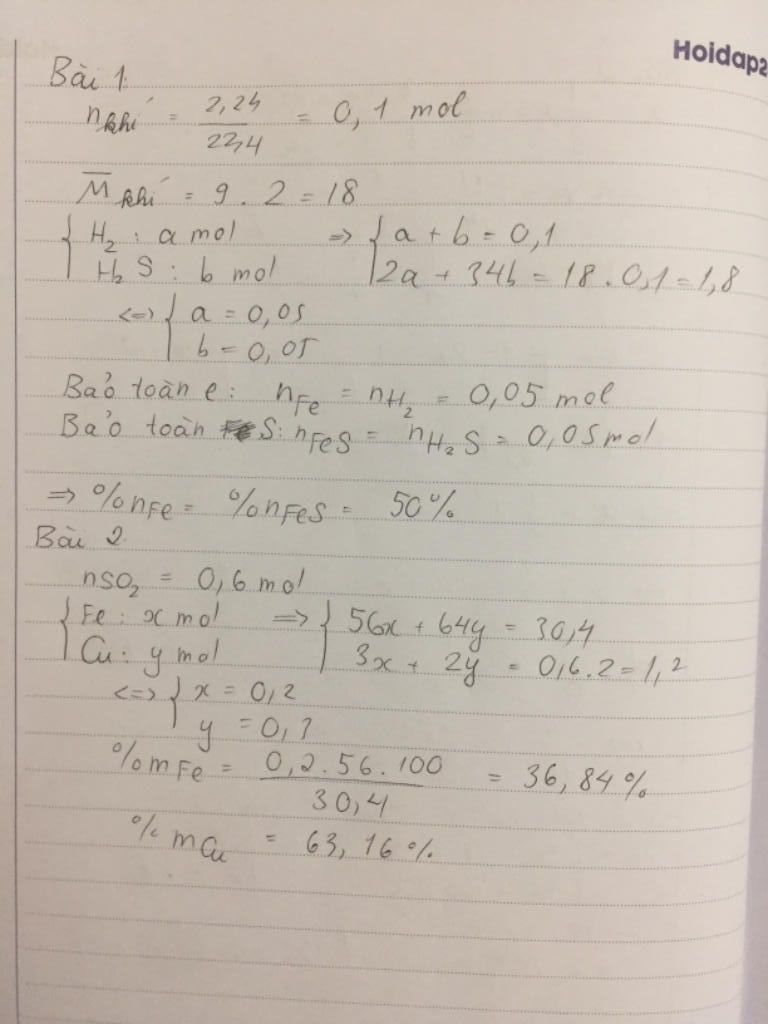 Hoidap2
Bài 1:
n khí = 2,24 / 22,4 = 0,1 mol
M̅ khí = 9 . 2 = 18
{ H₂ : a mol ⇒ { a + b = 0,1
H₂S : b mol 2a + 34b = 18 . 0,1 = 1,8
<=> { a = 0,05
b = 0,05
Bảo toàn e : n Fe = n H₂ = 0,05 mol
Bảo toàn S : n FeS = n H₂S = 0,05 mol
⇒ % n Fe = % n FeS = 50%
Bài 2
nSO₂ = 0,6 mol
{ Fe : x mol ⇒ { 56x + 64y = 30,4
Cu : y mol 3x + 2y = 0,6 . 2 = 1,2
<=> { x = 0,2
y = 0,3
% m Fe = 0,2 . 56 . 100 / 30,4 = 36,84 %
% m Cu = 63,16 %